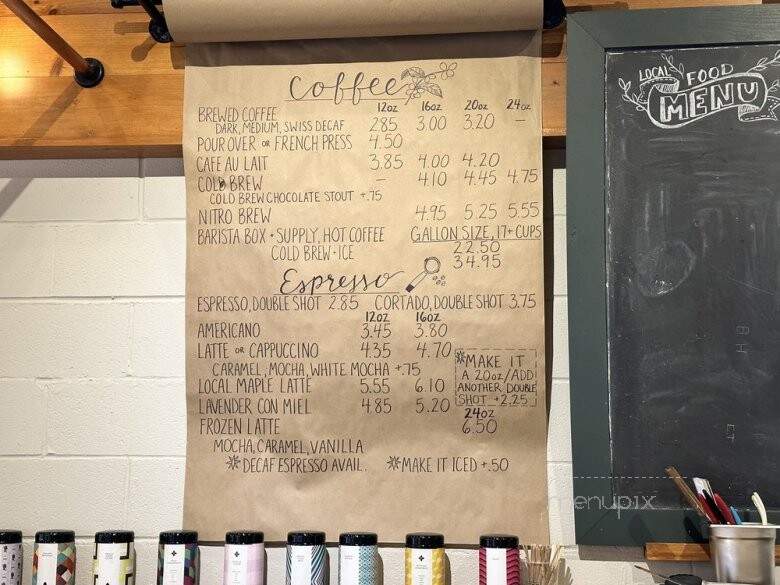 Coffee
12oz 16oz 20oz 24oz
BREWED COFFEE
DARK, MEDIUM, SWISS DECAF 2.85 3.00 3.20 —
POUR OVER OR FRENCH PRESS 4.50
CAFE AU LAIT 3.85 4.00 4.20
COLD BREW — 4.10 4.45 4.75
COLD BREW CHOCOLATE STOUT +.75
NITRO BREW 4.95 5.25 5.55
BARISTA BOX + SUPPLY, HOT COFFEE GALLON SIZE, 17+ CUPS
22.50
COLD BREW + ICE 34.95
Espresso
ESPRESSO, DOUBLE SHOT 2.85 CORTADO, DOUBLE SHOT 3.75
12oz 16oz
AMERICANO 3.45 3.80
LATTE OR CAPPUCCINO 4.35 4.70
CARAMEL, MOCHA, WHITE MOCHA +.75
LOCAL MAPLE LATTE 5.55 6.10
LAVENDER CON MIEL 4.85 5.20
*MAKE IT
A 20oz/ADD
ANOTHER DOUBLE
SHOT +2.25
24oz
FROZEN LATTE 6.50
MOCHA, CARAMEL, VANILLA
*DECAF ESPRESSO AVAIL. *MAKE IT ICED +.50
LOCAL FOOD
MENU
menupix